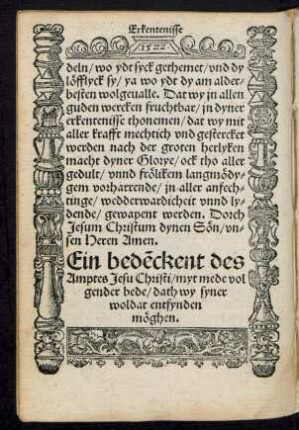 Erkentenisse
1522
deln/ wo ydt syck gethemet/ vnd dy
löfflyck sy/ ya wo ydt dy am alder-
besten wolgeualle. Dat wy in allen
guden wercken fruchtbar/ in dyner
erkentenisse thonemen/ dat wy mit
aller krafft mechtich vnd gestercket
werden nach der groten herlyken
macht dyner Glorye/ ock tho aller
gedult/ vnnd frölikem langmödy-
gem vorharrende/ in aller anfech-
tinge/ wedderwardicheit vnnd ly-
dende/ gewapent werden. Dorch
Jesum Christum dynen Sön/ vn-
sen Heren Amen.
Ein bedēckent des
Amptes Jesu Christi/ myt mede vol
gender bede/ dath wy syner
woldat entfynden
möghen.